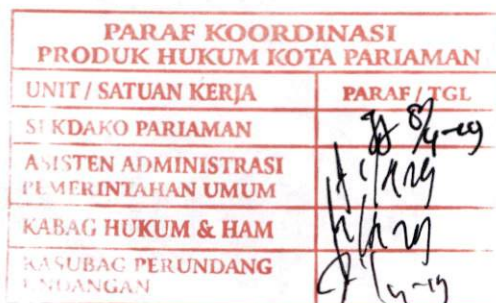 PARAF KOORDINASI
PRODUK HUKUM KOTA PARIAMAN
UNIT / SATUAN KERJA PARAF / TGL
SEKDAKO PARIAMAN 8/4-19
ASISTEN ADMINISTRASI
PEMERINTAHAN UMUM
KABAG HUKUM & HAM
KASUBAG PERUNDANG
UNDANGAN